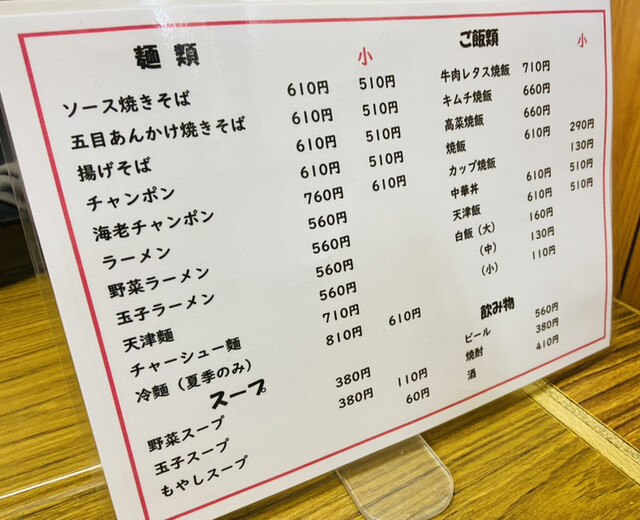 麺類 小
ソース焼きそば 610円 510円
五目あんかけ焼きそば 610円 510円
揚げそば 610円 510円
チャンポン 610円 510円
海老チャンポン 760円 610円
ラーメン 560円
野菜ラーメン 560円
玉子ラーメン 560円
天津麺 560円
チャーシュー麺 710円
冷麺（夏季のみ） 810円 610円
スープ
野菜スープ 380円
玉子スープ 380円 110円
もやしスープ 60円
ご飯類 小
牛肉レタス焼飯 710円
キムチ焼飯 660円
高菜焼飯 660円
焼飯 610円 290円
カップ焼飯 130円
中華丼 610円 510円
天津飯 610円 510円
白飯（大） 160円
（中） 130円
（小） 110円
飲み物
ビール 560円
焼酎 380円
酒 410円